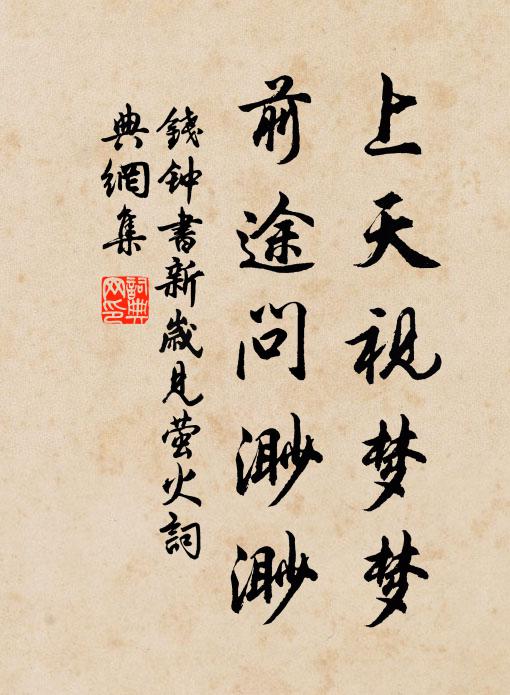 上天视梦梦
前途问渺渺
錢钟書新歲見萤火詞
典網集
詞典网印